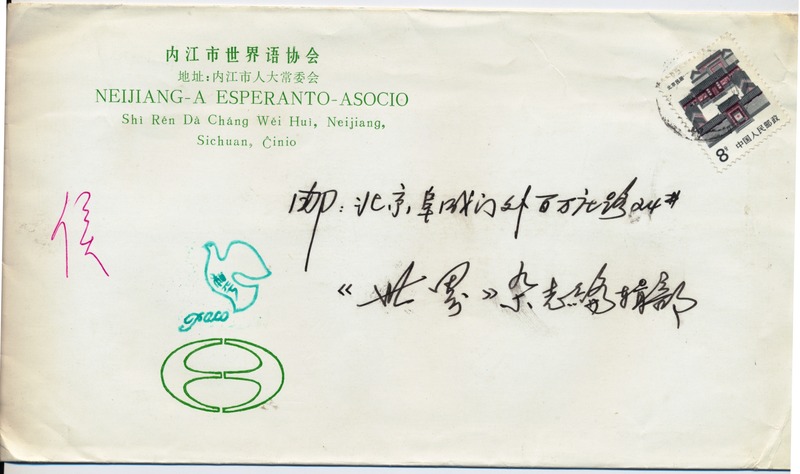 内江市世界语协会
地址:内江市人大常委会
NEIJIANG-A ESPERANTO-ASOCIO
Shì Rén Dà Cháng Wěi Huì, Neijiang,
Sichuan, Ĉinio
8分
中国人民邮政
邮:北京阜成门外百万庄路24#
《世界》杂志编辑部
侯
paco